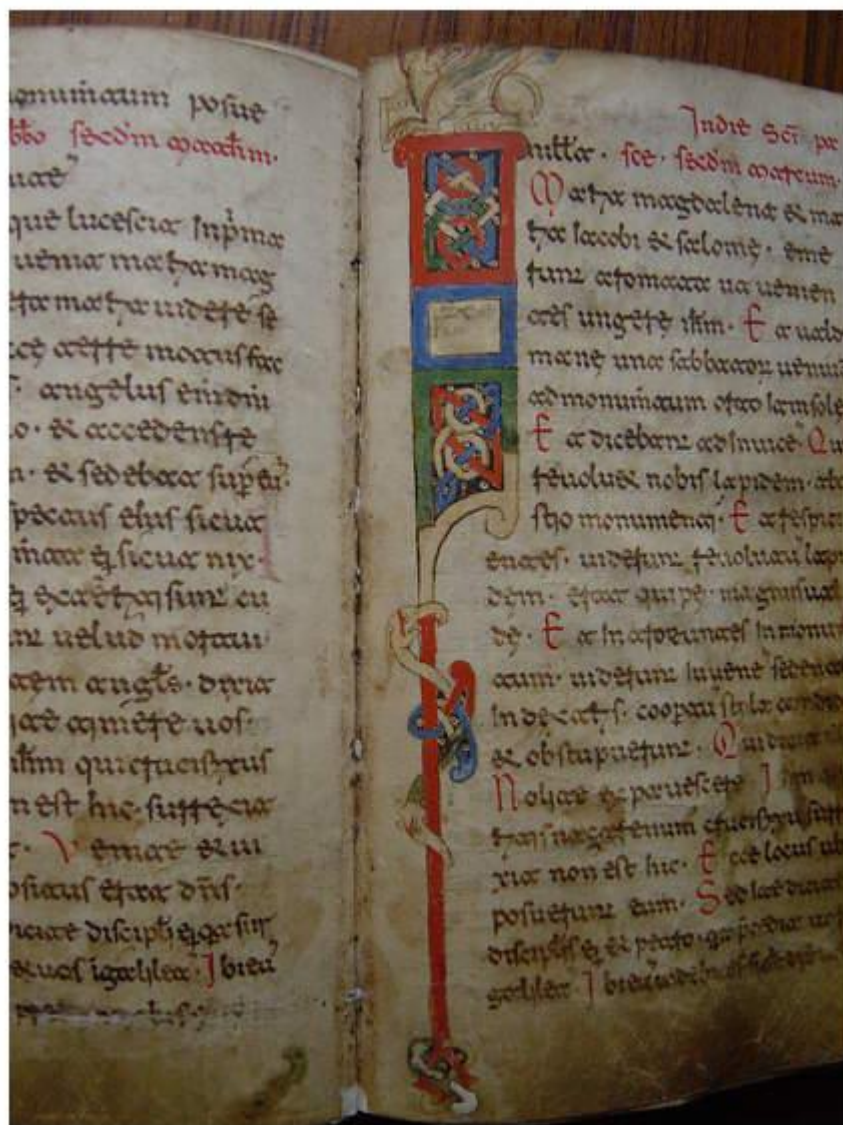 onum̄tum posue
bb̄o secd̄m matth̄m.
que lucescit In p̄ma
uenit maria mag
maria uidere se
ce terre motus fac
angelus eni dn̄i
o. & accedens re
m. & sedebat sup̄ eu.
spectus eius sicut
m̄ta ei sicut nix.
exterriti sunt
uelud mortui
autem angl̄s. dixit
timere uos.
ih̄m qui crucifixus
n est hic. surrexit
Venite & ui
ositus erat dn̄s.
dicite discipl̄i ei qa sur
& uos i galilea. Ibi eu
In die Sci pa
sce. secd̄m marcum.
Maria magdalena & ma
ria Iacobi & salome. eme
runt aromata ut uenien
tes ungere ih̄m. Et uald
mane una sabbator ueniu
ad monum̄tum orto iam sole
Et dicebant ad Inuice. Qui
reuolu& nobis lapidem. ab o
stio monumenti. Et respici
entes. uiderunt reuolutu lapi
dem. erat quipe. magnus ual
de. Et Introeuntes In monum
tum. uiderunt Iuuene sedent
In dextris. coopertu stola candid
& obstupuerunt. Qui dixit
Nolite expauescere
nazarenum crucifixu surr
xit non est hic. Ecce locus ub
posuerunt eum. Sed Ite dicit
discipl̄is ei & petro. qa p̄cedit uos
galilea. Ibi eu